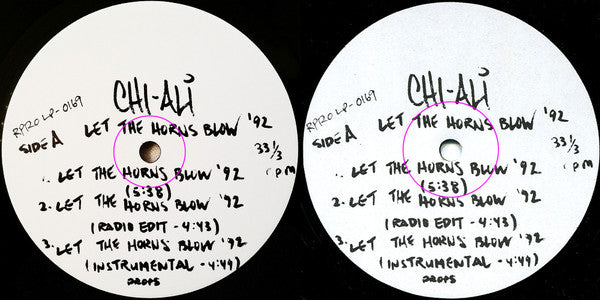 CHI-ALI
RPROLP-0169
SIDE A LET THE HORNS BLOW '92
33 1/3 RPM
1. LET THE HORNS BLOW '92
(5:38)
2. LET THE HORNS BLOW '92
(RADIO EDIT - 4:43)
3. LET THE HORNS BLOW '92
(INSTRUMENTAL - 4:49)
CHI-ALI
RPROLP-0169
SIDE A LET THE HORNS BLOW '92
33 1/3 RPM
1. LET THE HORNS BLOW '92
(5:38)
2. LET THE HORNS BLOW '92
(RADIO EDIT - 4:43)
3. LET THE HORNS BLOW '92
(INSTRUMENTAL - 4:49)